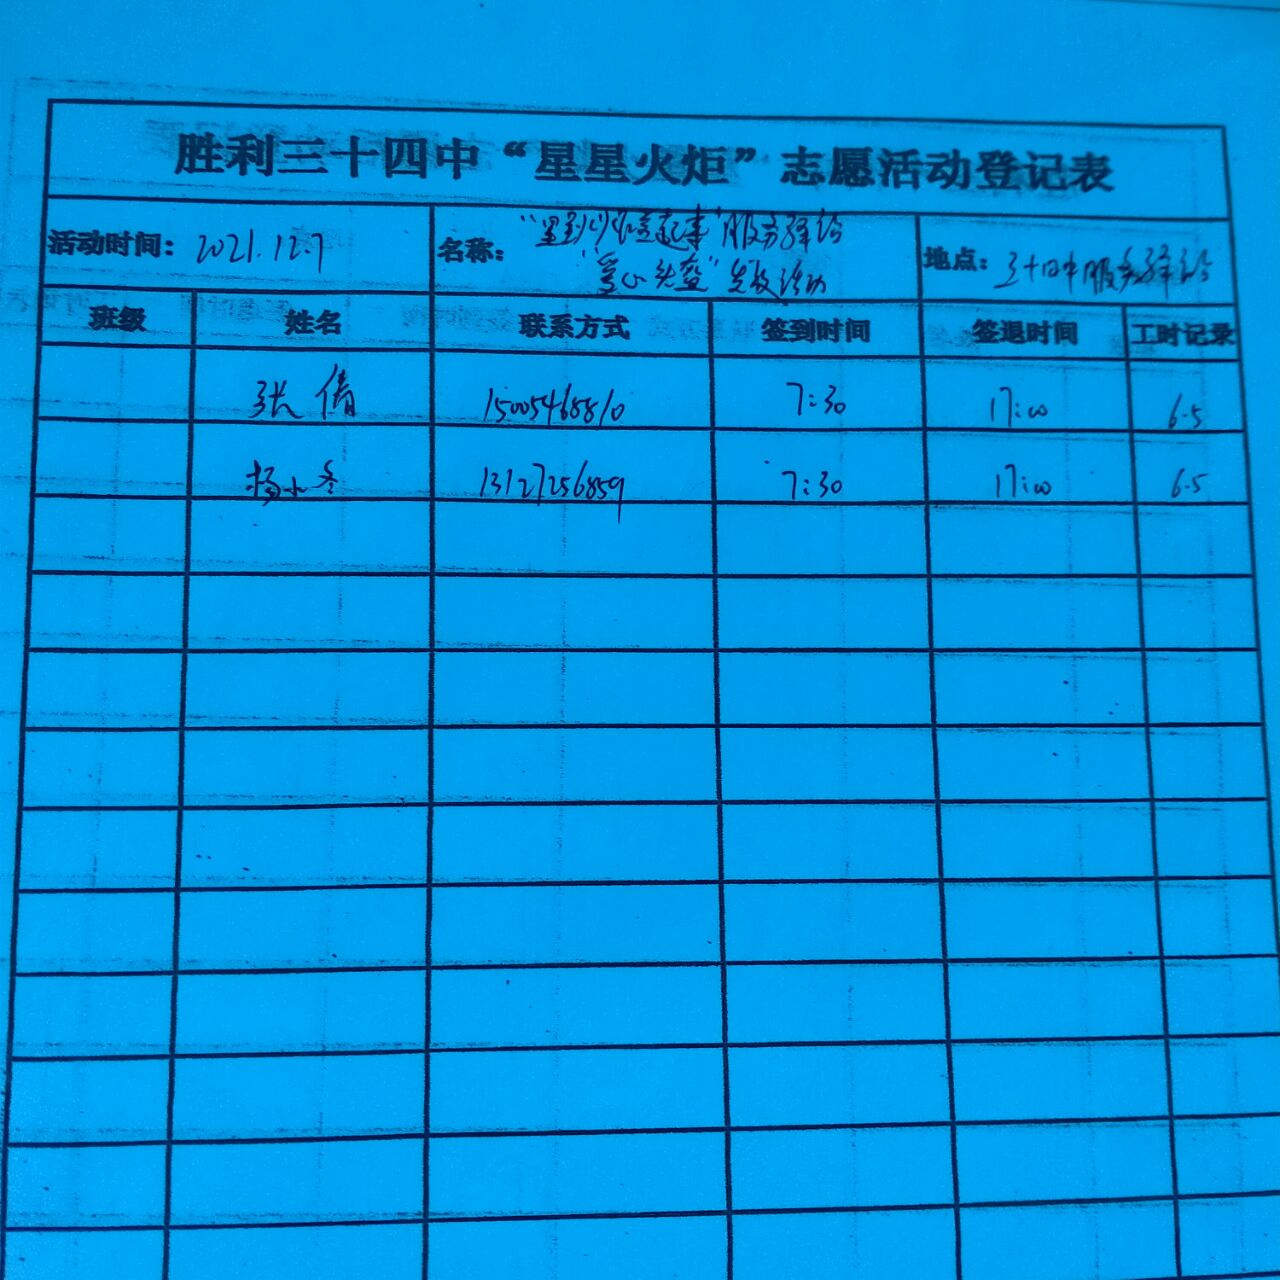 胜利三十四中“星星火炬”志愿活动登记表
活动时间： 2021.12.7
名称： 服务驿站
“爱心头盔”发放活动
地点： 三十四中服务驿站
班级 姓名 联系方式 签到时间 签退时间 工时记录
张倩 15005468810 7:30 17:00 6.5
杨小冬 13127256859 7:30 17:00 6.5